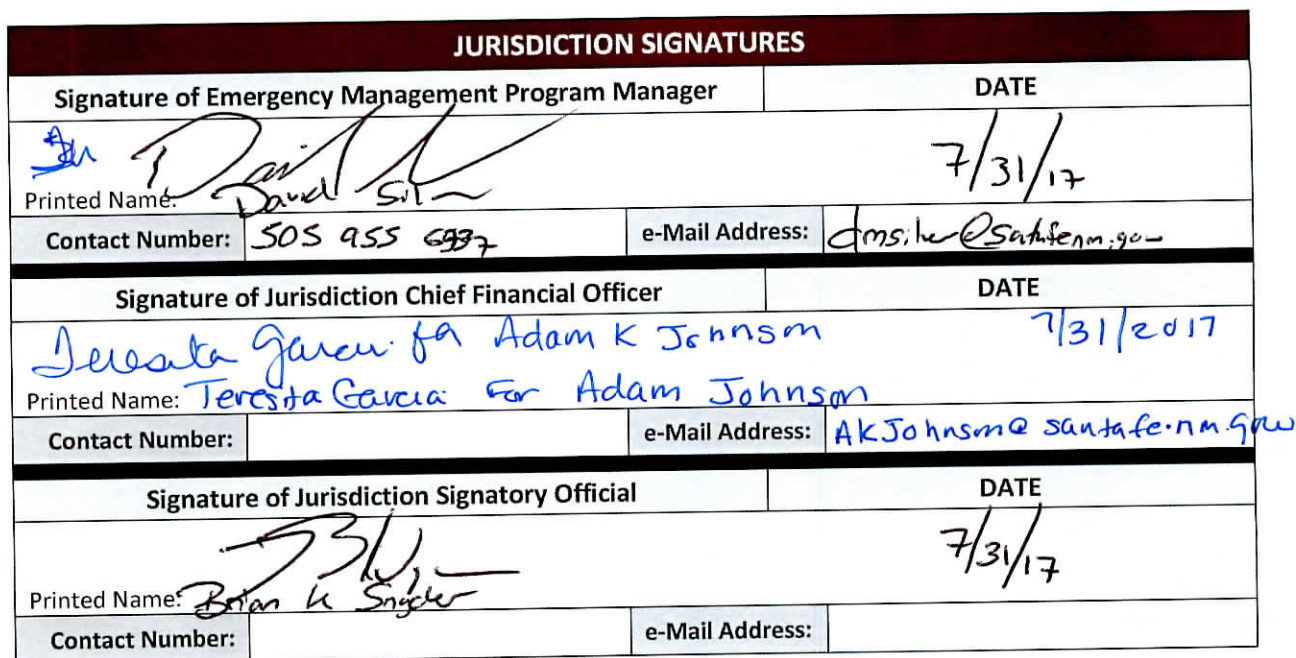 JURISDICTION SIGNATURES
Signature of Emergency Management Program Manager DATE
7/31/17
Printed Name: David
Contact Number: 505 955 6937 e-Mail Address:
Signature of Jurisdiction Chief Financial Officer DATE
Teresita Garcia for Adam K Johnson 7/31/2017
Printed Name: Teresita Garcia For Adam Johnson
Contact Number: e-Mail Address: AKJohnson@santafe.nm.gov
Signature of Jurisdiction Signatory Official DATE
7/31/17
Printed Name: Brian K Snyder
Contact Number: e-Mail Address: